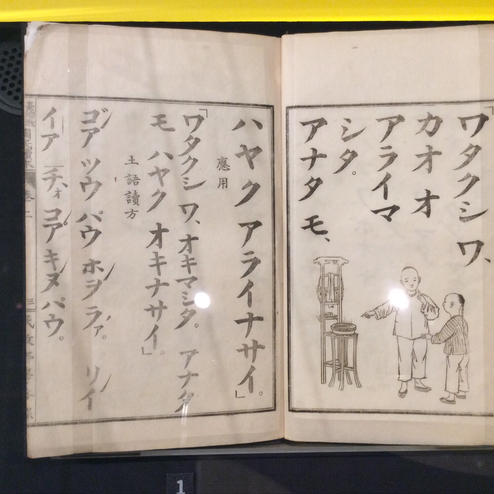 「ワタクシ ワ、
カオ オ
アライマ
シタ。
アナタ モ、
ハヤク アライナサイ。」
應用
「ワタクシ ワ、オキマシタ。 アナタ
モ ハヤク オキナサイ。」
土語讀方
ゴア ツウ パウ ホヲ ラァ。 リイ
イア
パウ。
1